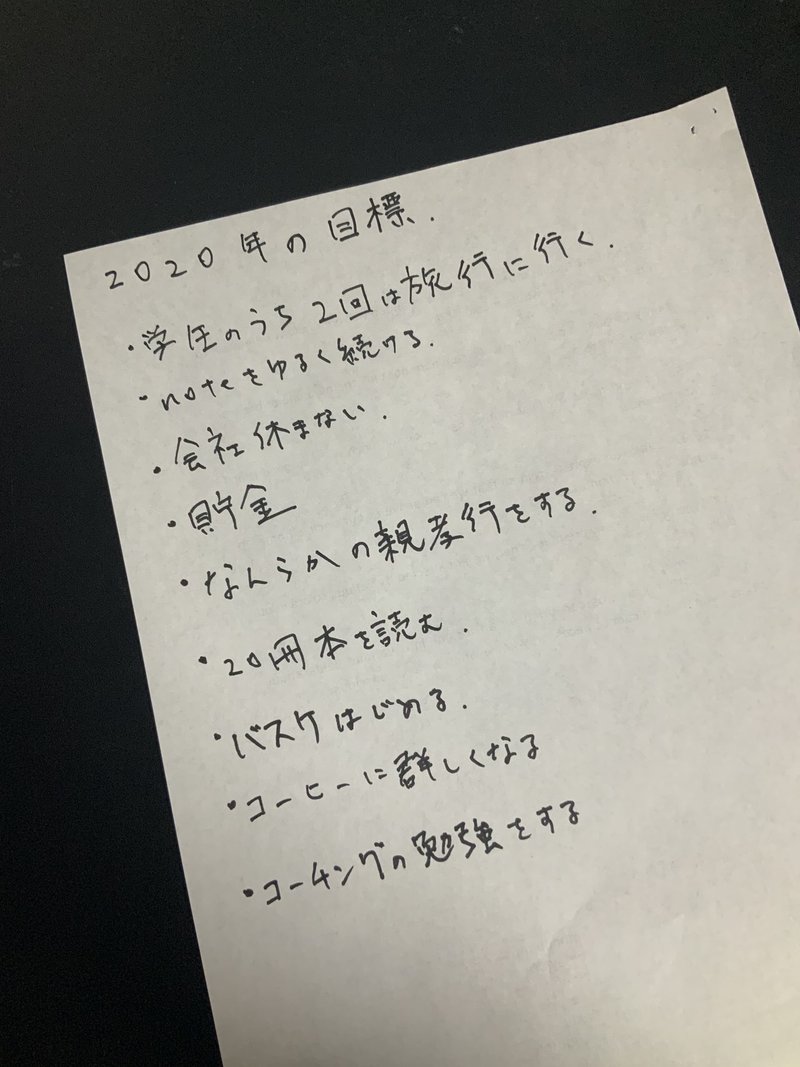 2020年の目標.
・学生のうち2回は旅行に行く.
・noteをゆるく続ける.
・会社休まない.
・貯金
・なんらかの親孝行をする.
・20冊本を読む.
・バスケはじめる.
・コーヒーに詳しくなる
・コーチングの勉強をする